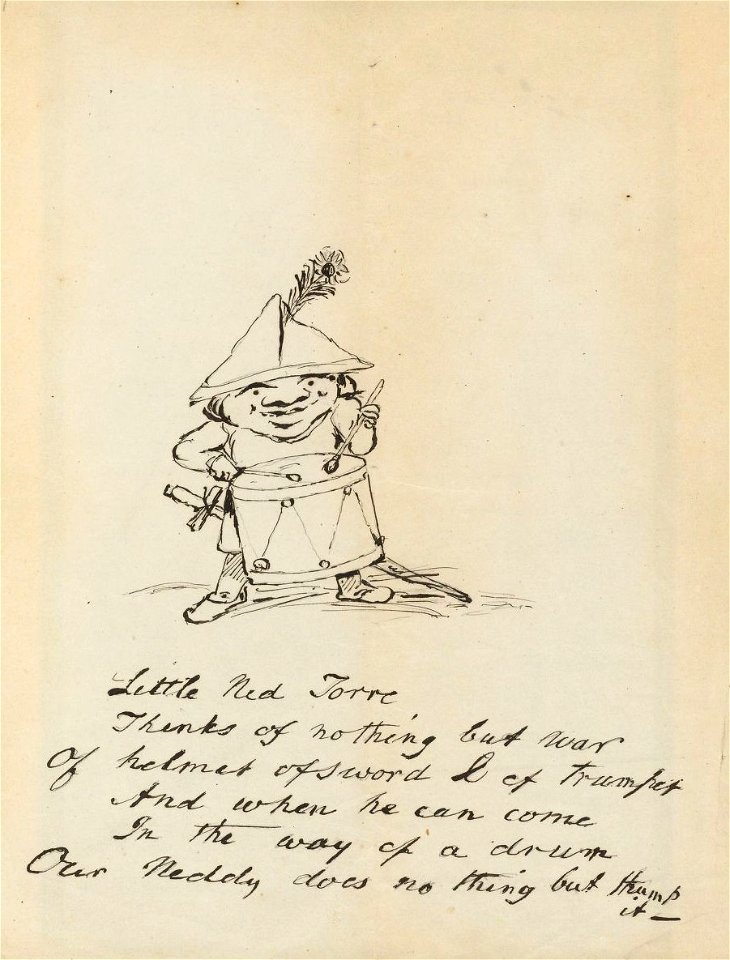 Little Ned Torre
Thinks of nothing but war
Of helmet of sword & of trumpet
And when he can come
In the way of a drum
Our Neddy does nothing but thump
it —